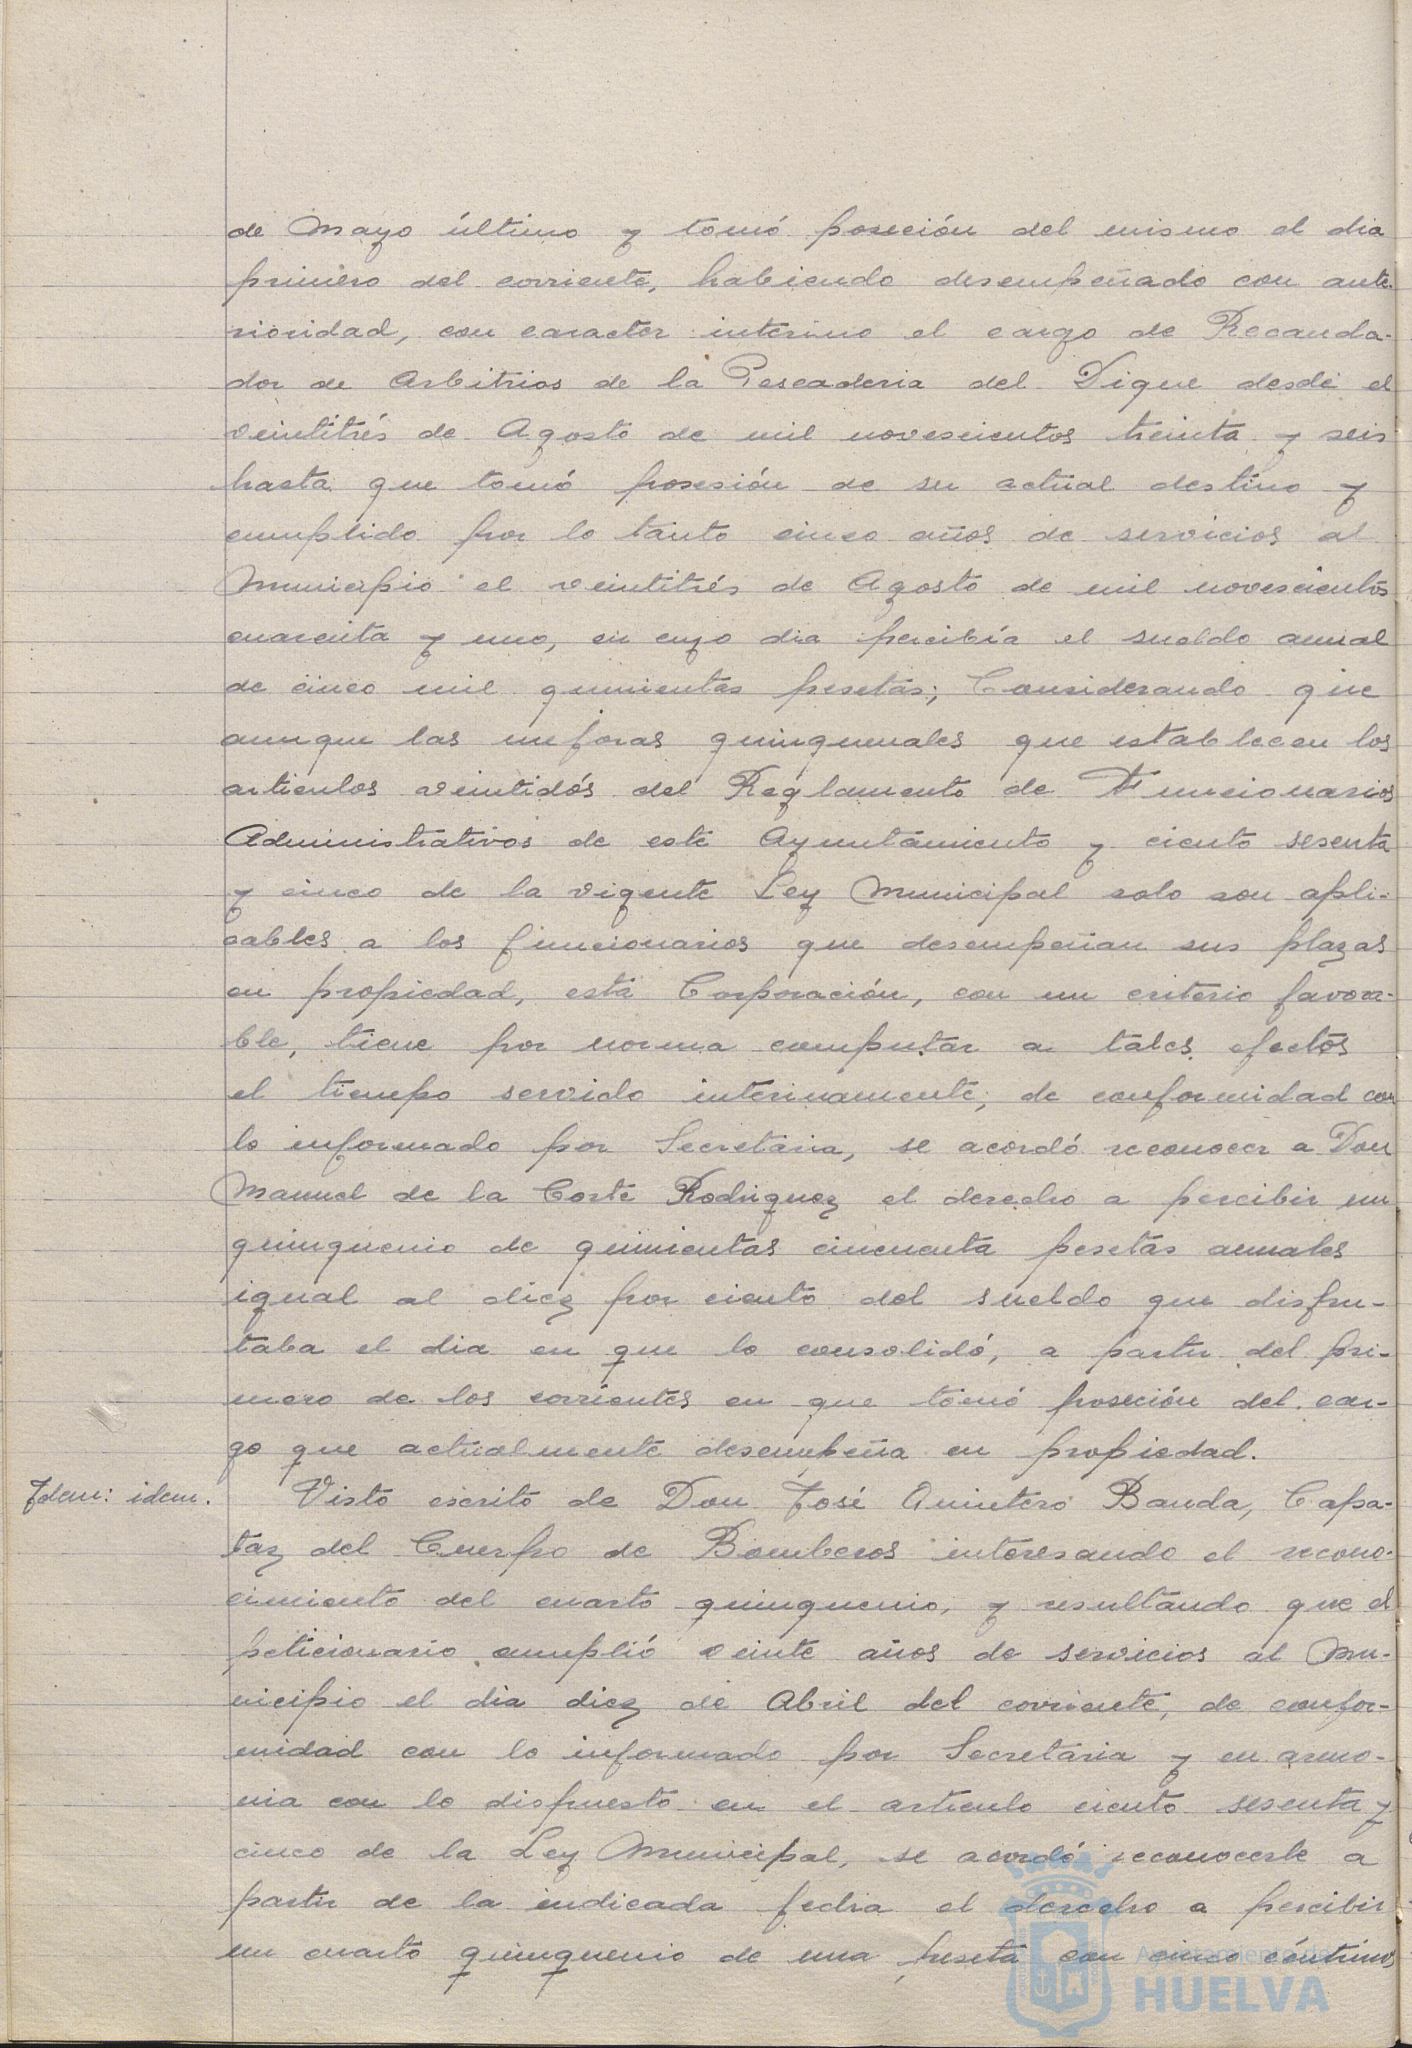 de Mayo último y tomó posesión del mismo el dia
primero del corriente, habiendo desempeñado con ante-
rioridad, con caracter interino el cargo de Recauda-
dor de Arbitrios de la Pescaderia del Dique desde el
veintitrés de Agosto de mil novescientos treinta y seis
hasta que tomó posesión de su actual destino y
cumplido por lo tanto cinco años de servicios al
Municipio el veintitrés de Agosto de mil novescientos
cuarenta y uno, en cuyo dia percibía el sueldo anual
de cinco mil quinientas pesetas; Considerando que
aunque las mejoras quinquenales que establecen los
articulos veintidós del Reglamento de Funcionarios
Administrativos de este Ayuntamiento y ciento sesenta
y cinco de la vigente Ley Municipal solo son apli-
cables a los funcionarios que desempeñan sus plazas
en propiedad, esta Corporación, con un criterio favora-
ble, tiene por norma computar a tales efectos
el tiempo servido interinamente; de conformidad con
lo informado por Secretaria, se acordó reconocer a Don
Manuel de la Corte Rodriguez el derecho a percibir un
quinquenio de quinientas cincuenta pesetas anuales
igual al diez por ciento del sueldo que disfru-
taba el dia en que lo consolidó, a partir del pri-
mero de los corrientes en que tomó posesión del car-
go que actualmente desempeña en propiedad.
Idem: idem. Visto escrito de Don José Quintero Banda, Capa-
taz del Cuerpo de Bomberos interesando el recono-
cimiento del cuarto quinquenio, y resultando que el
peticionario cumplió veinte años de servicios al Mu-
nicipio el dia diez de Abril del corriente, de confor-
midad con lo informado por Secretaria y en armo-
nia con lo dispuesto en el articulo ciento sesenta y
cinco de la Ley Municipal, se acordó reconocerle a
partir de la indicada fecha el derecho a percibir
un cuarto quinquenio de una peseta con cinco céntimos
Ayuntamiento de
HUELVA